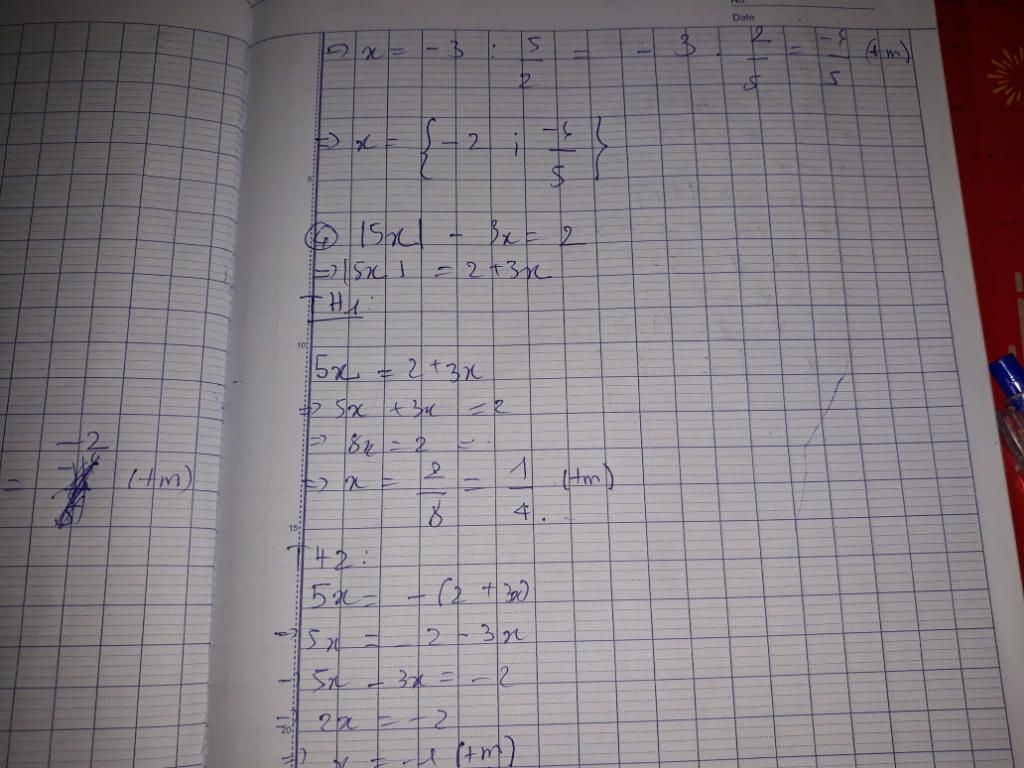 No.
Date
⇒ x = -3 : 5/2 = -3 . 2/5 = -6/5 (tm)
⇒ x = { -2 ; -6/5 }
④ |5x| - 3x = 2
⇒ |5x| = 2 + 3x
TH1:
10
5x = 2 + 3x
⇒ 5x + 3x = 2
⇒ 8x = 2 =
⇒ x = 2/8 = 1/4 (tm)
15
TH2:
5x = -(2 + 3x)
⇒ 5x = -2 - 3x
⇒ 5x - 3x = -2
⇒ 2x = -2
20
⇒ x = -1 (tm)
= -2 (tm)